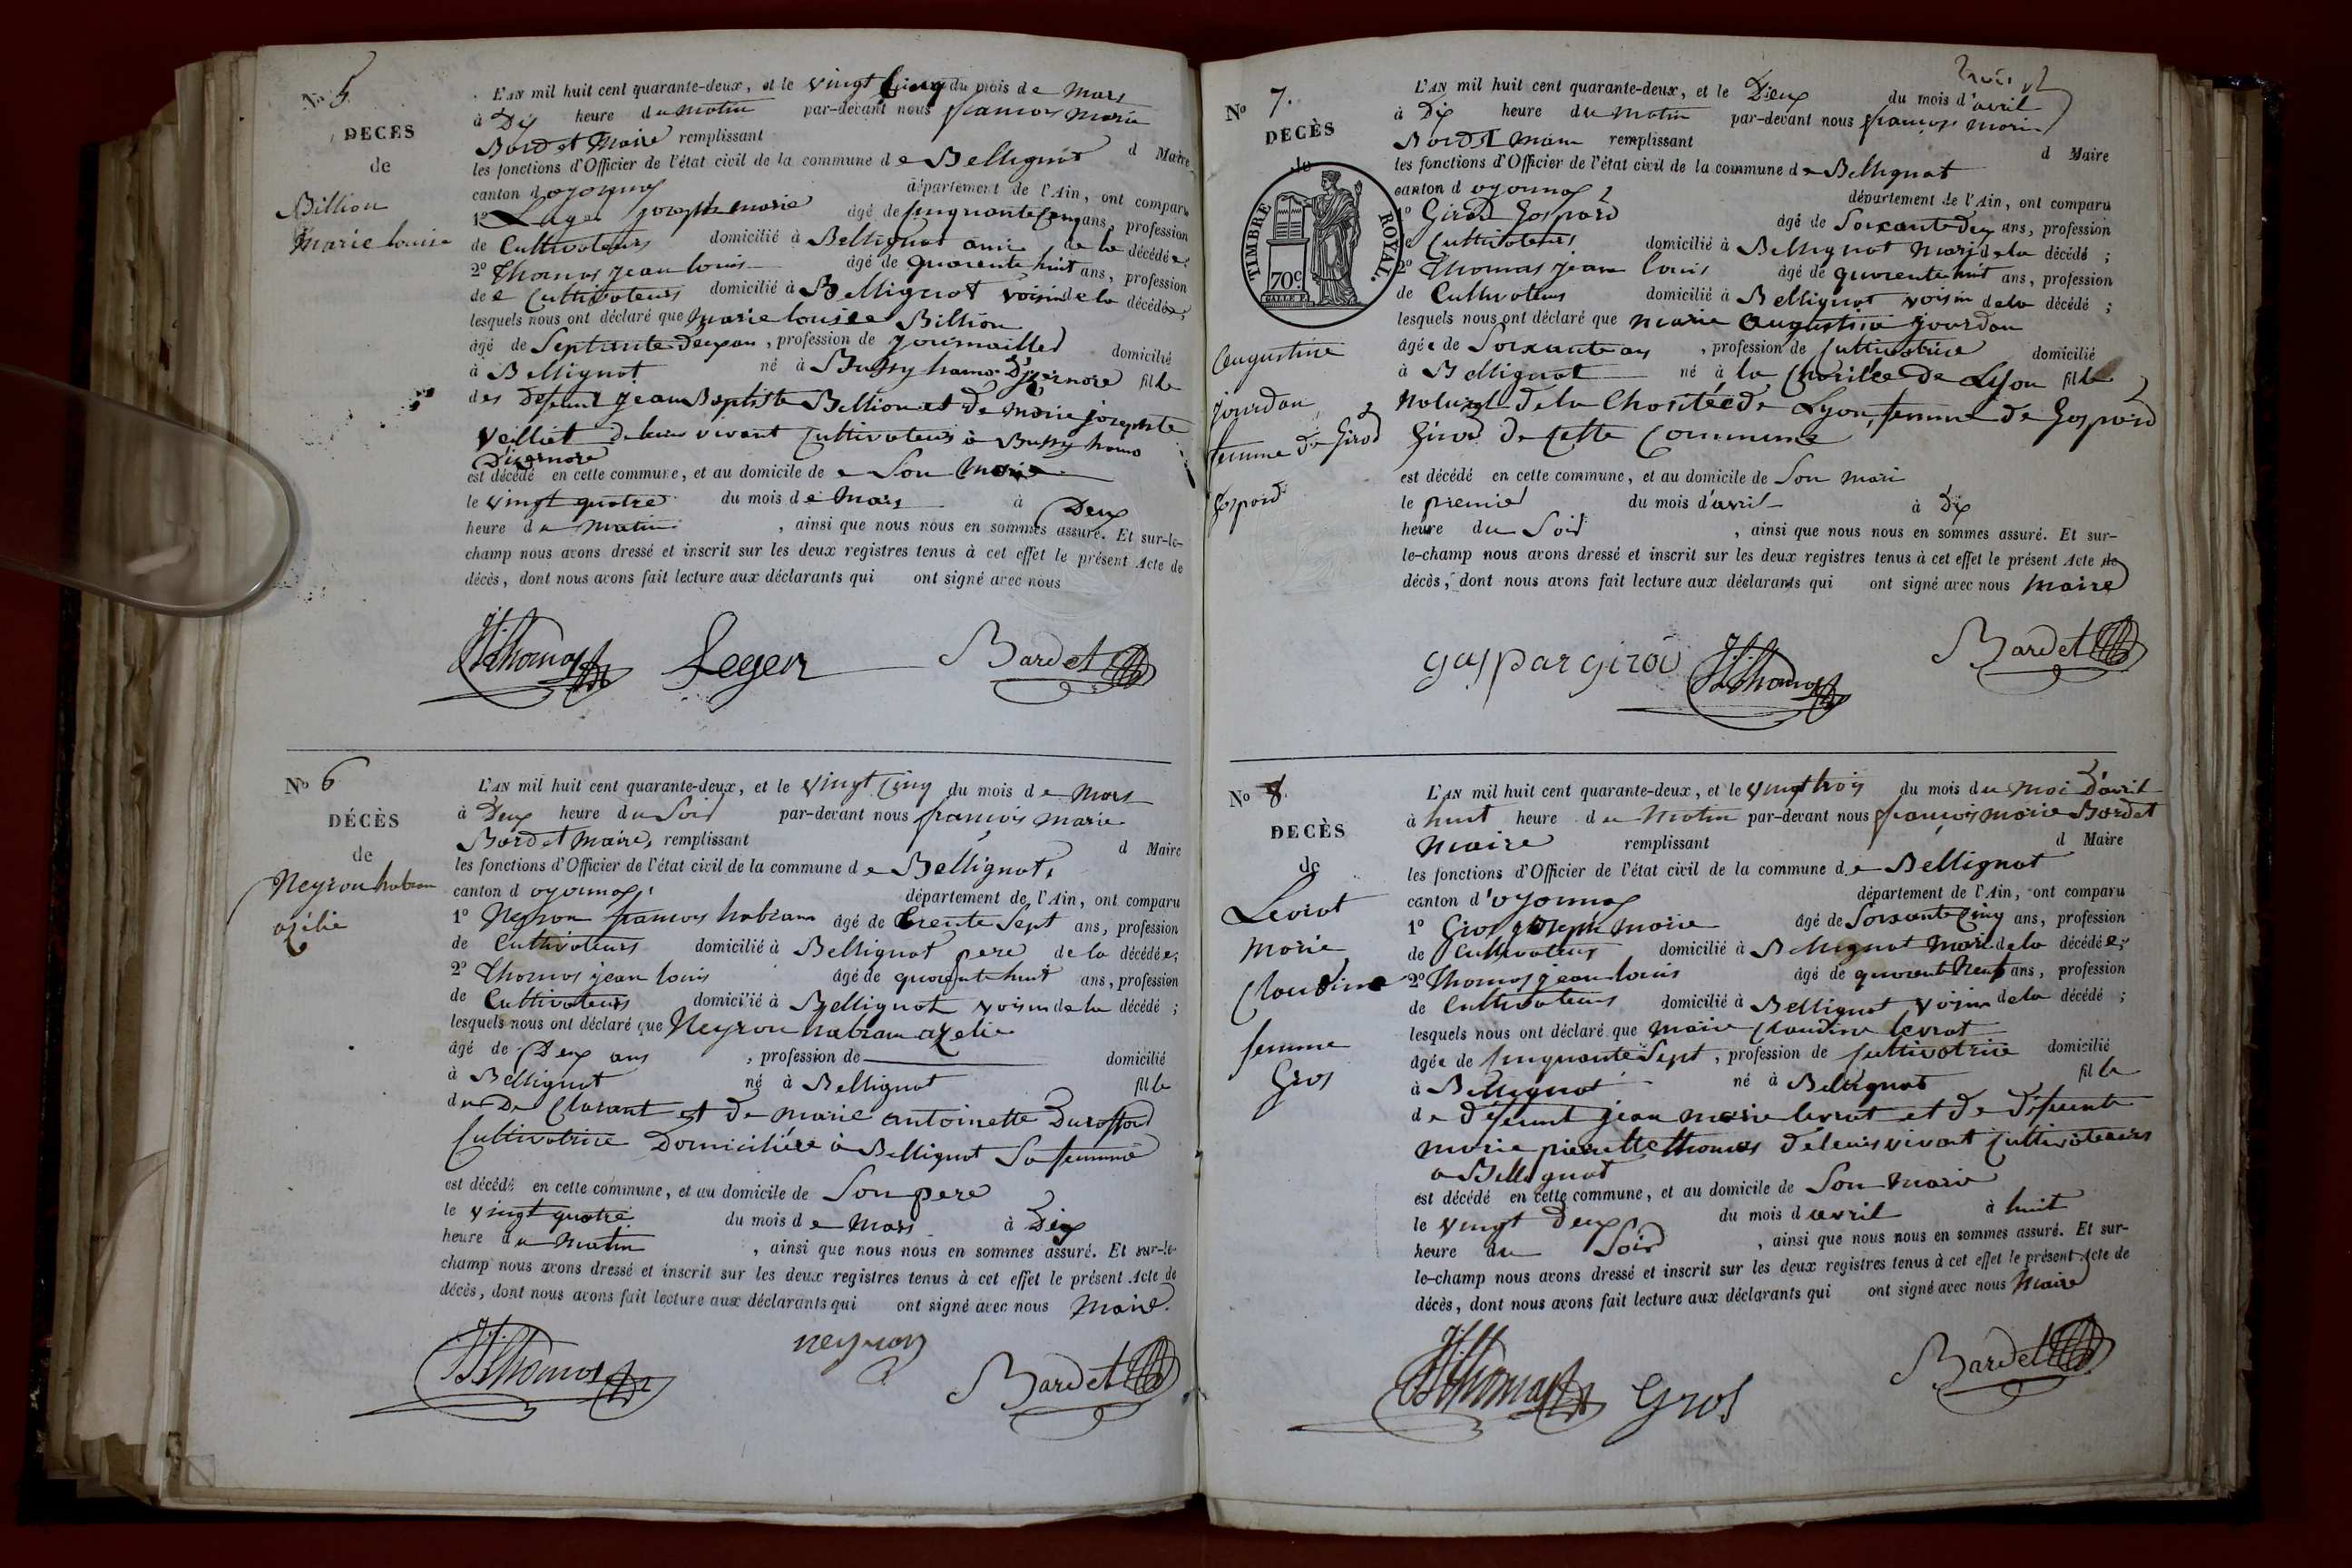 No 5
DECES
de
Billion
Marie louise
L'AN mil huit cent quarante-deux, et le vingt Cinq du mois de Mars
à Dix heure du matin par-devant nous francois Marie
Bardet Maire remplissant d Maire
les fonctions d'Officier de l'état civil de la commune de Bellignat
canton d oyonnax département de l'Ain, ont comparu
1º Leger joseph marie âgé de Cinquante Cinq ans, profession
de Cultivateurs domicilié à Bellignat ami de la décédée
2º Thomas jean louis âgé de quarente huit ans, profession
de Cultivateurs domicilié à Bellignat voisin de la décédée;
lesquels nous ont déclaré que Marie louise Billion
âgé de Septante deux ans, profession de journailled domicilié
à Bellignat né à Bussy hamo D'izernore fille
des defunt jean Baptiste Billion et de Marie josephte
Veilliet de leur vivant Cultivateurs à Bussy hamo
Dizernore
est décédé en cette commune, et au domicile de Son Marie
le vingt quatre du mois de Mars à Deux
heure du matin, ainsi que nous nous en sommes assuré. Et sur-le-
champ nous avons dressé et inscrit sur les deux registres tenus à cet effet le présent Acte de
décès, dont nous avons fait lecture aux déclarants qui ont signé avec nous
JLThomas Leger Bardet
No 6
DÉCÈS
de
Neyron habran
azélie
L'AN mil huit cent quarante-deux, et le vingt Cinq du mois de Mars
à Deux heure du Soir par-devant nous francois Marie
Bardet Maire, remplissant d Maire
les fonctions d'Officier de l'état civil de la commune de Bellignat,
canton d oyonnax département de l'Ain, ont comparu
1º Neyron francois habran âgé de trente Sept ans, profession
de Cultivateurs domicilié à Bellignat pere de la décédée;
2º Thomas jean louis âgé de quarente huit ans, profession
de Cultivateurs domicilié à Bellignat voisin de la décédé;
lesquels nous ont déclaré que Neyron habran azelie
âgé de Deux ans, profession de domicilié
à Bellignat né à Bellignat fille
du De Clarant et de Marie antoinette Duraffour
Cultivatrice Domiciliée à Bellignat Sa femme
est décédé en cette commune, et au domicile de Son pere
le vingt quatre du mois de Mars à Dix
heure du Matin, ainsi que nous nous en sommes assuré. Et sur-le-
champ nous avons dressé et inscrit sur les deux registres tenus à cet effet le présent Acte de
décès, dont nous avons fait lecture aux déclarants qui ont signé avec nous Maire.
JLThomas neyron Bardet
No 7.
DECÈS
de
TIMBRE ROYAL.
70c
Augustine
jourdan
femme de Girod
Gaspard
trois
L'AN mil huit cent quarante-deux, et le Deux du mois d'avril
à Dix heure du Matin par-devant nous francois Marie
Bardet Maire remplissant d Maire
les fonctions d'Officier de l'état civil de la commune de Bellignat
canton d oyonnax département de l'Ain, ont comparu
1º Girod Gaspard âgé de Soixante Dix ans, profession
de Cultivateurs domicilié à Bellignat Mari de la décédé;
2º Thomas jean louis âgé de quarente huit ans, profession
de Cultivateurs domicilié à Bellignat voisin de la décédé;
lesquels nous ont déclaré que Marie Augustine jourdan
âgée de Soixante ans, profession de Cultivatrice domicilié
à Bellignat né à la Charitée de Lyon fille
Naturel de la Charitée de Lyon, femme de Gaspard
Girod de Cette Commune
est décédé en cette commune, et au domicile de Son Mari
le premier du mois d'avril à Dix
heure du Soir, ainsi que nous nous en sommes assuré. Et sur-
le-champ nous avons dressé et inscrit sur les deux registres tenus à cet effet le présent Acte de
décès, dont nous avons fait lecture aux déclarants qui ont signé avec nous Maire
gaspar giro JLThomas Bardet
No 8.
DECÈS
de
Levrat
Marie
Claudine
femme
Gros
L'AN mil huit cent quarante-deux, et le vingt trois du mois du Moi D'avril
à huit heure du Matin par-devant nous francois Marie Bardet
Maire remplissant d Maire
les fonctions d'Officier de l'état civil de la commune de Bellignat
canton d'oyonnax département de l'Ain, ont comparu
1º Gros joseph Marie âgé de Soixante Cinq ans, profession
de Cultivateurs domicilié à Bellignat Mari de la décédée;
2º Thomas jean louis âgé de quarente Neuf ans, profession
de Cultivateurs domicilié à Bellignat voisin de la décédé;
lesquels nous ont déclaré que Marie Claudine levrat
âgée de Cinquante Sept, profession de Cultivatrice domicilié
à Bellignat né à Bellignat fille
de défunt jean Marie levrat et de défunte
Marie pierrette thomas de leurs vivant Cultivateurs
a Bellignat
est décédé en cette commune, et au domicile de Son Marie
le vingt Deux du mois d avril à huit
heure du Soir, ainsi que nous nous en sommes assuré. Et sur-
le-champ nous avons dressé et inscrit sur les deux registres tenus à cet effet le présent Acte de
décès, dont nous avons fait lecture aux déclarants qui ont signé avec nous Maire
JLThomas Gros Bardet